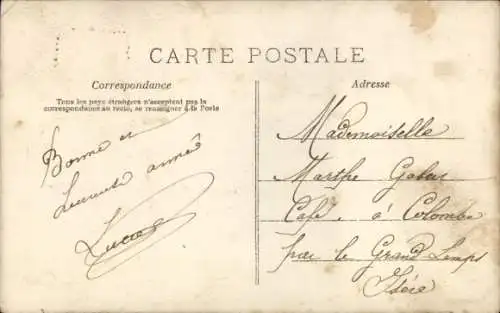 CARTE POSTALE
Correspondance
Tous les pays étrangers n'acceptent pas la
correspondance au recto, se renseigner à la Poste
Bonne et
heureuse année
Adresse
Mademoiselle
Marthe
Café à Colombe
par le Grand Lemps
Isère